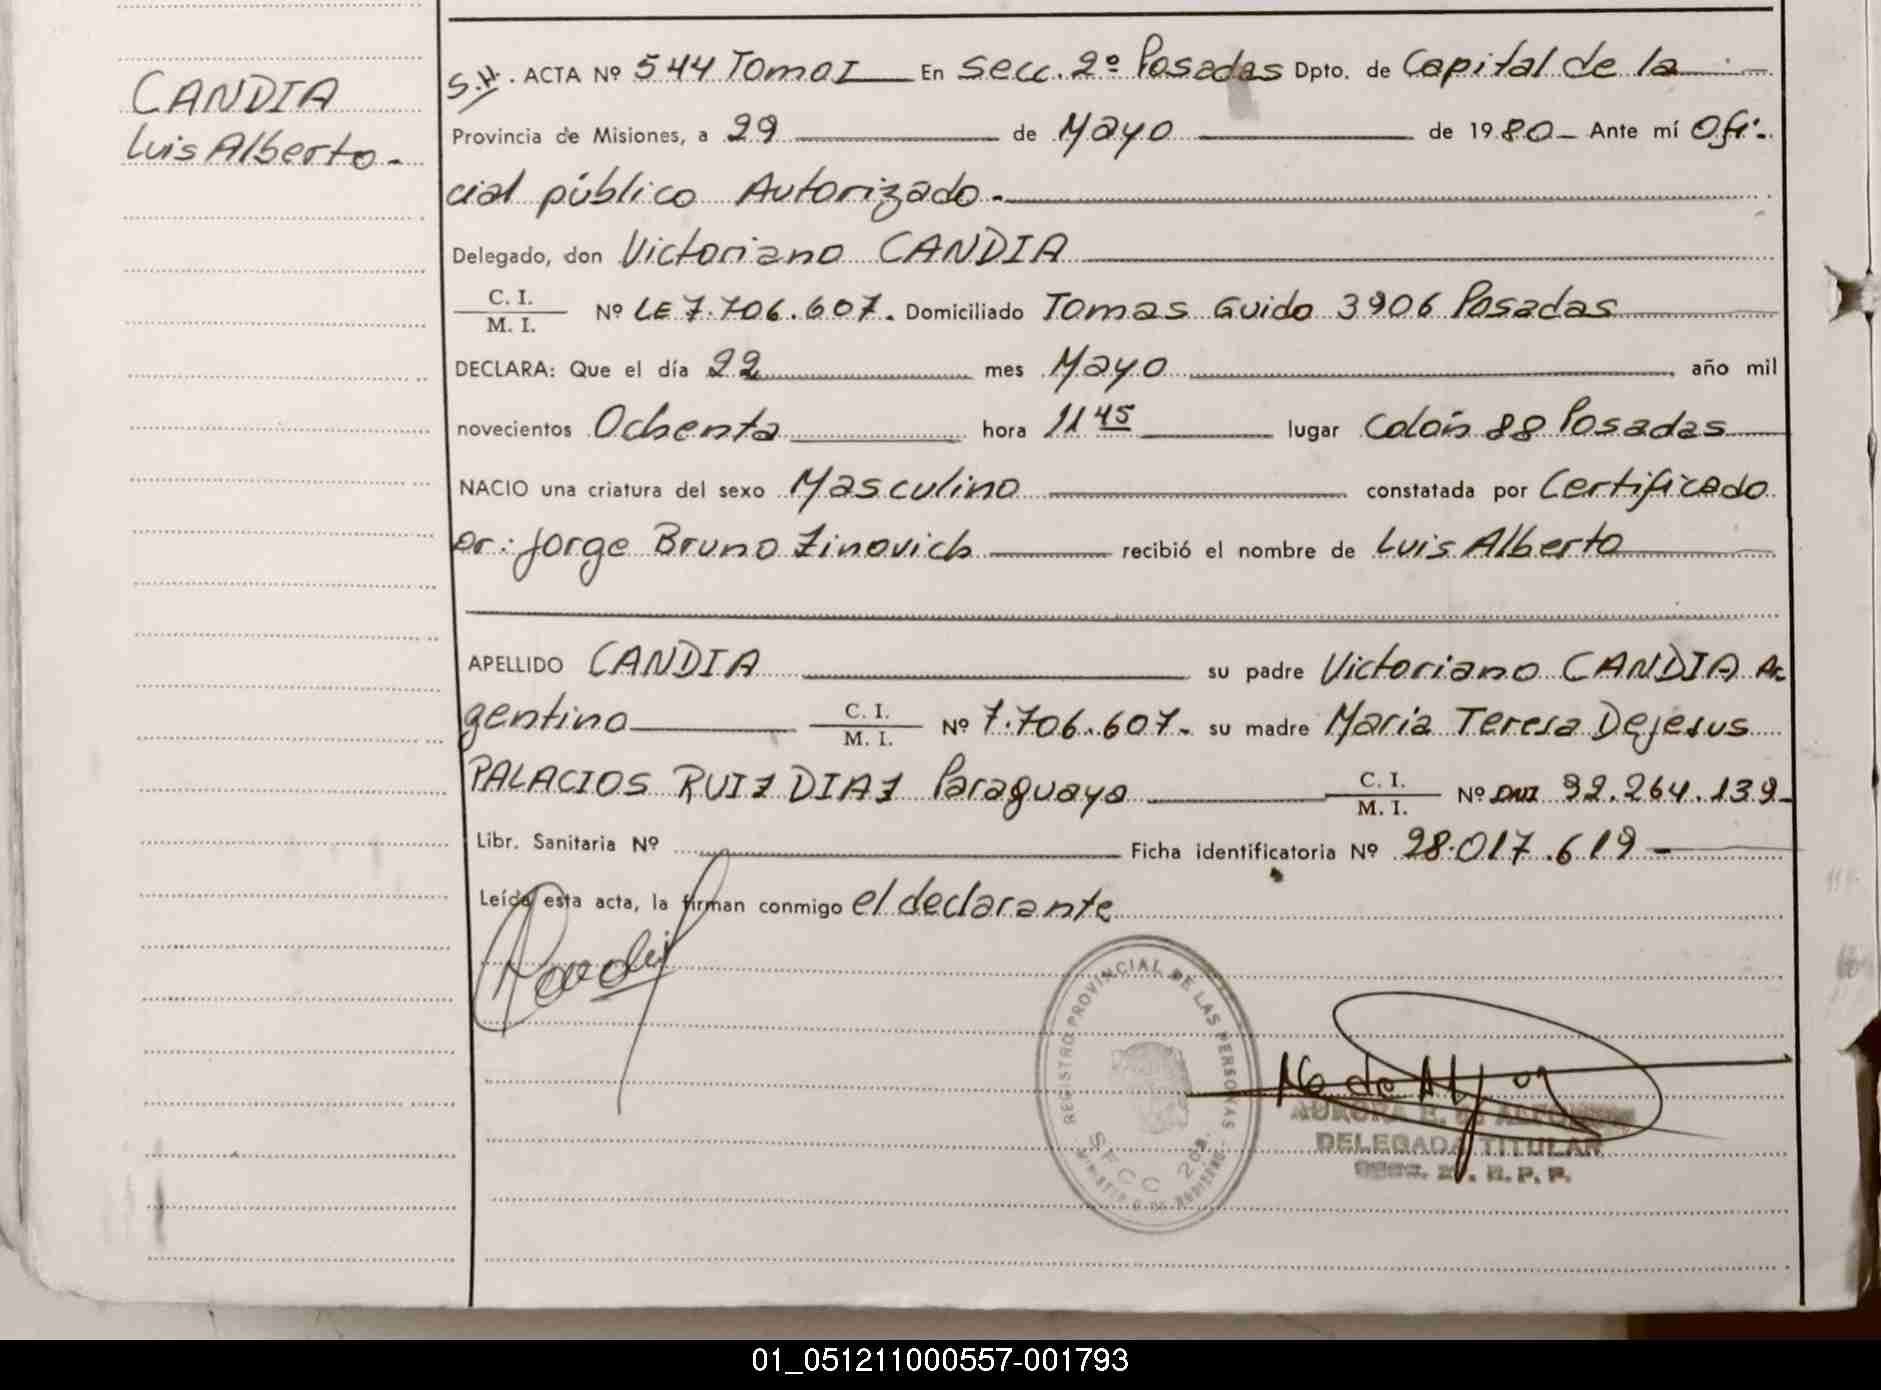 CANDIA
Luis Alberto-
S.H. ACTA Nº 544 Tomo I En Secc. 2º Posadas Dpto. de Capital de la
Provincia de Misiones, a 29 de Mayo de 1980- Ante mí Ofi-
cial público Autorizado-
Delegado, don Victoriano CANDIA
C. I.
M. I. Nº LE 7.706.607. Domiciliado Tomas Guido 3906 Posadas
DECLARA: Que el día 22 mes Mayo año mil
novecientos Ochenta hora 11 45 lugar Colón 88 Posadas
NACIO una criatura del sexo Masculino constatada por Certificado
Dr: Jorge Bruno Zinovich recibió el nombre de Luis Alberto
APELLIDO CANDIA su padre Victoriano CANDIA Ar-
gentino C. I. M. I. Nº 7.706.607- su madre Maria Teresa Dejesus
PALACIOS RUIZ DIAZ Paraguaya C. I. M. I. Nº DNI 92.264.139-
Libr. Sanitaria Nº Ficha identificatoria Nº 28.017.619-
Leída esta acta, la firman conmigo el declarante
REGISTRO PROVINCIAL DE LAS PERSONAS
SECC 2da.
MINISTERIO DE GOBIERNO
AURORA E. DELEGADA TITULAR
R. P. P.
01_051211000557-001793